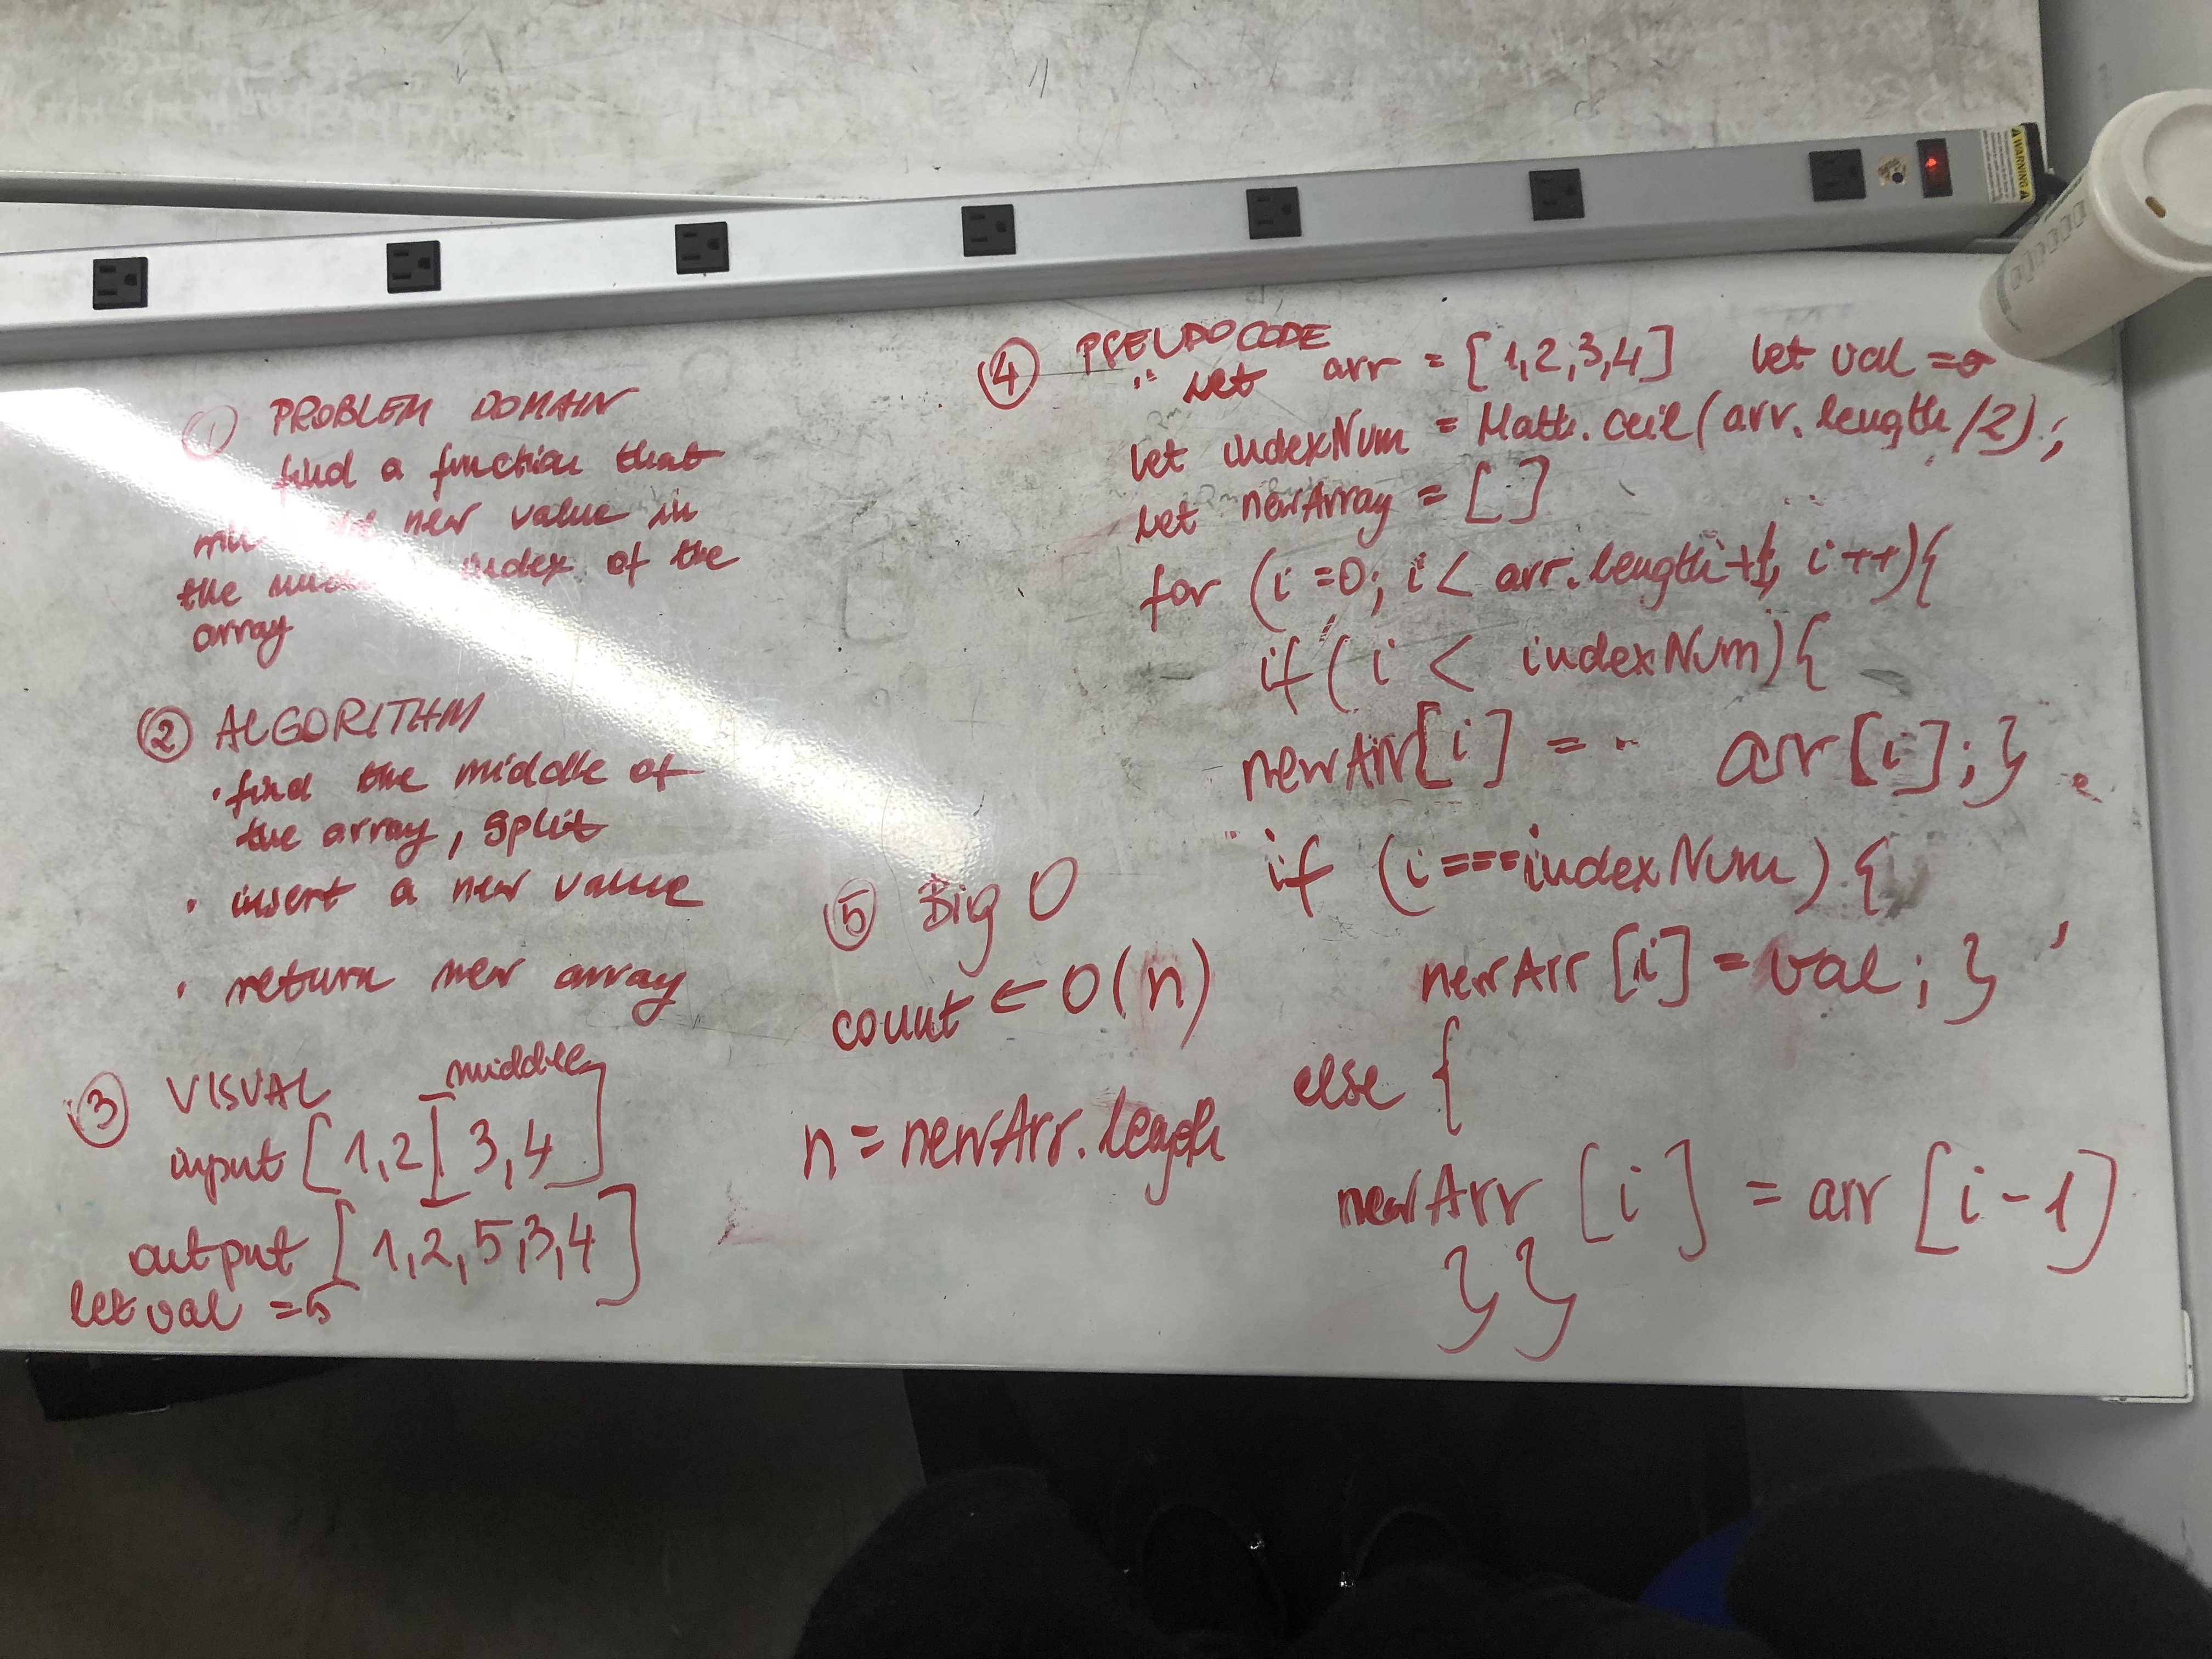 ① PROBLEM DOMAIN
find a function that
new value in
the index of the
array
② ALGORITHM
· find the middle of
the array, split
· insert a new value
· return new array
③ VISUAL
middle
input [1,2][3,4]
output [1,2,5,3,4]
let val = 5
④ PSEUDOCODE
let arr = [1,2,3,4] let val =
let indexNum = Math.ceil(arr.length/2);
let newArray = []
for (i=0; i < arr.length+1; i++){
if (i < indexNum){
newArr[i] = arr[i];}
if (i===indexNum) {
newArr[i] = val; }
else {
newArr[i] = arr[i-1]
}}
⑤ Big O
count ← O(n)
n = newArr.length
WARNING